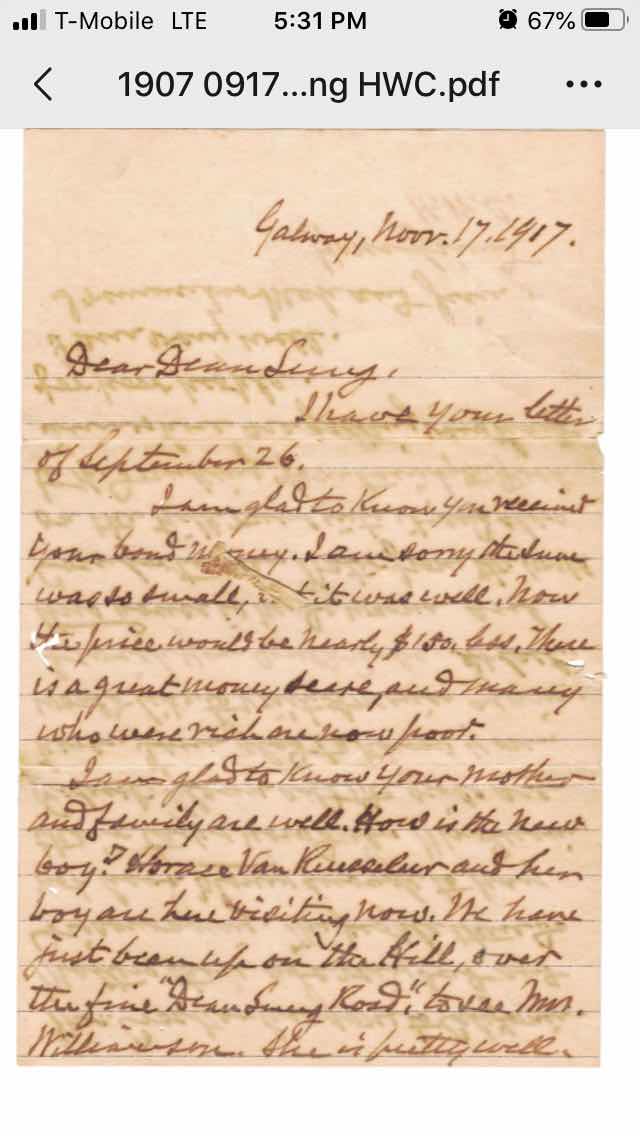 T-Mobile LTE 5:31 PM 67%
1907 0917...ng HWC.pdf
Galway, Novr. 17. 1907.
Dear Dean Lung,
I have your letter
of September 26.
I am glad to know you received
your bond money. I am sorry the sum
was so small, it was well. Now
the price would be nearly $150. less. There
is a great money scare, and many
who were rich are now poor.
I am glad to know your mother
and family are well. How is the new
boy? Horace Van Rensselaer and his
boy are here visiting now. We have
just been up on the Hill, over
the fine "Dean Lung Road," to see Mrs.
Williamson. She is pretty well.